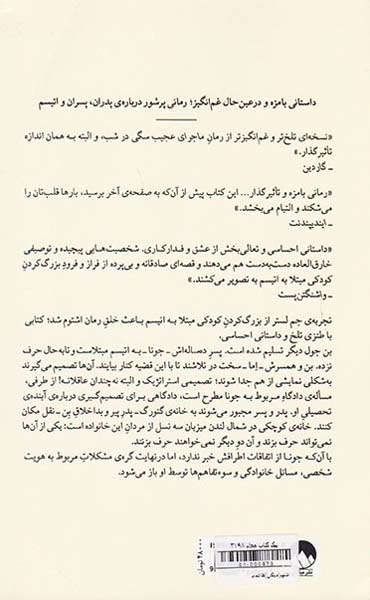 داستانی بامزه و درعین‌حال غم‌انگیز؛ رمانی پرشور درباره‌ی پدران، پسران و اتیسم
«نسخه‌ای تلخ‌تر و غم‌انگیزتر از رمان ماجرای عجیب سگی در شب، و البته به همان اندازه
تأثیرگذار.»
ـ گاردین
«رمانی بامزه و تأثیرگذار... این کتاب پیش از آن‌که به صفحه‌ی آخر برسید، بارها قلب‌تان را
می‌شکند و التیام می‌بخشد.»
ـ ایندیپندنت
«داستانی احساسی و تعالی‌بخش از عشق و فداکاری. شخصیت‌هایی پیچیده و توصیفی
خارق‌العاده دست‌به‌دست هم می‌دهند و قصه‌ای صادقانه و بی‌پرده از فراز و فرودِ بزرگ‌کردنِ
کودکی مبتلا به اتیسم به تصویر می‌کشند.»
ـ واشنگتن‌پست
تجربه‌ی جم لستر از بزرگ‌کردنِ کودکی مبتلا به اتیسم باعث خلقِ رمان اشتوم شد؛ کتابی
با طنزی تلخ و داستانی احساسی.
بن جول دیگر تسلیم شده است. پسرِ ده‌ساله‌اش ـ جونا ـ به اتیسم مبتلاست و تابه‌حال حرف
نزده. بن و همسرش ـ اِما ـ سخت در تلاشند تا با این قضیه کنار بیایند. آن‌ها تصمیم می‌گیرند
به‌شکلی نمایشی از هم جدا شوند؛ تصمیمی استراتژیک و البته نه‌چندان عاقلانه! از طرفی،
مسأله‌ی دادگاهِ مربوط به جونا مطرح است، دادگاهی برای تصمیم‌گیری درباره‌ی آینده‌ی
تحصیلی او. پدر و پسر مجبور می‌شوند به خانه‌ی گئورگ ـ پدرِ پیر و بداخلاقِ بِن ـ نقل مکان
کنند. خانه‌ی کوچکی در شمال لندن میزبان سه نسل از مردانِ این خانواده است: یکی از آن‌ها
نمی‌تواند حرف بزند و آن دو دیگر نمی‌خواهند حرف بزنند.
با آن‌که جونا از اتفاقات اطرافش خبر ندارد، اما درنهایت گره‌ی مشکلاتِ مربوط به هویت
شخصی، مسائل خانوادگی و سوءتفاهم‌ها توسط او باز می‌شود.
۴۸۰۰۰ تومان
01-000873